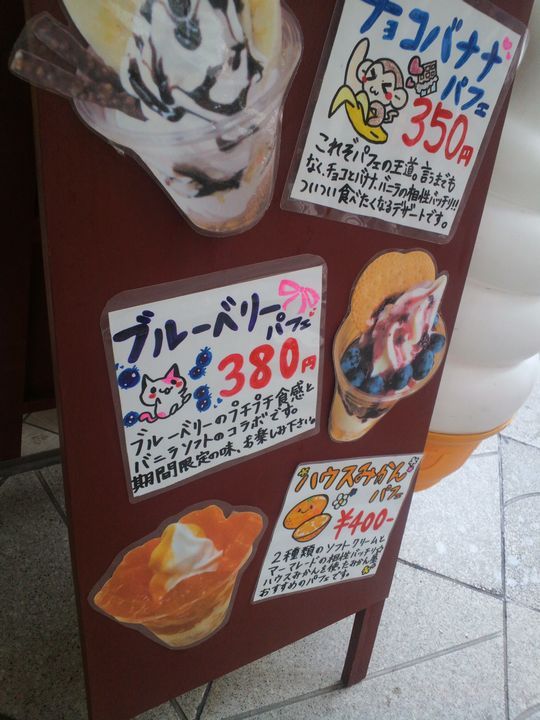 チョコバナナ
パフェ
350円
これぞパフェの王道。言うまでも
なく、チョコとバナナ、バニラの相性バッチリ!!
ついつい食べたくなるデザートです。
ブルーベリー
パフェ
380円
ブルーベリーのプチプチ食感と
バニラソフトのコラボです。
期間限定の味、お楽しみ下さい。
ハウスみかん
パフェ
¥400-
2種類のソフトクリームと
マーマレードの相性バッチリ
ハウスみかんを使ったみかん
おすすめのパフェです。